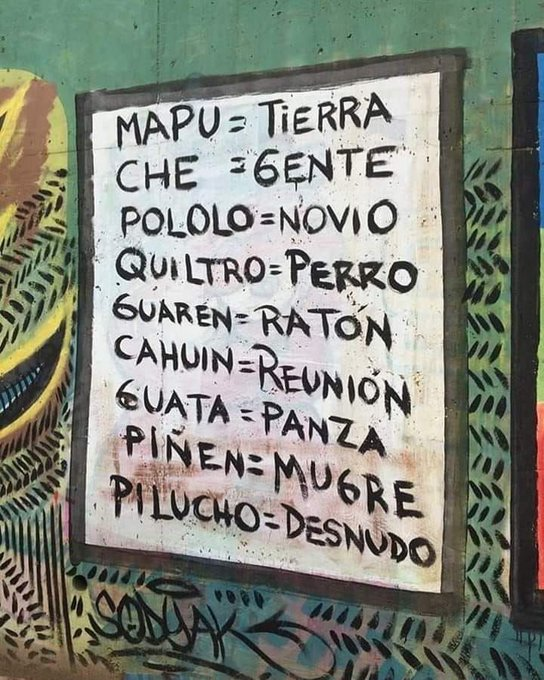 MAPU = TIERRA
CHE = GENTE
POLOLO = NOVIO
QUILTRO = PERRO
GUAREN = RATÓN
CAHUIN = REUNIÓN
GUATA = PANZA
PIÑEN = MUGRE
PILUCHO = DESNUDO
SODYAK